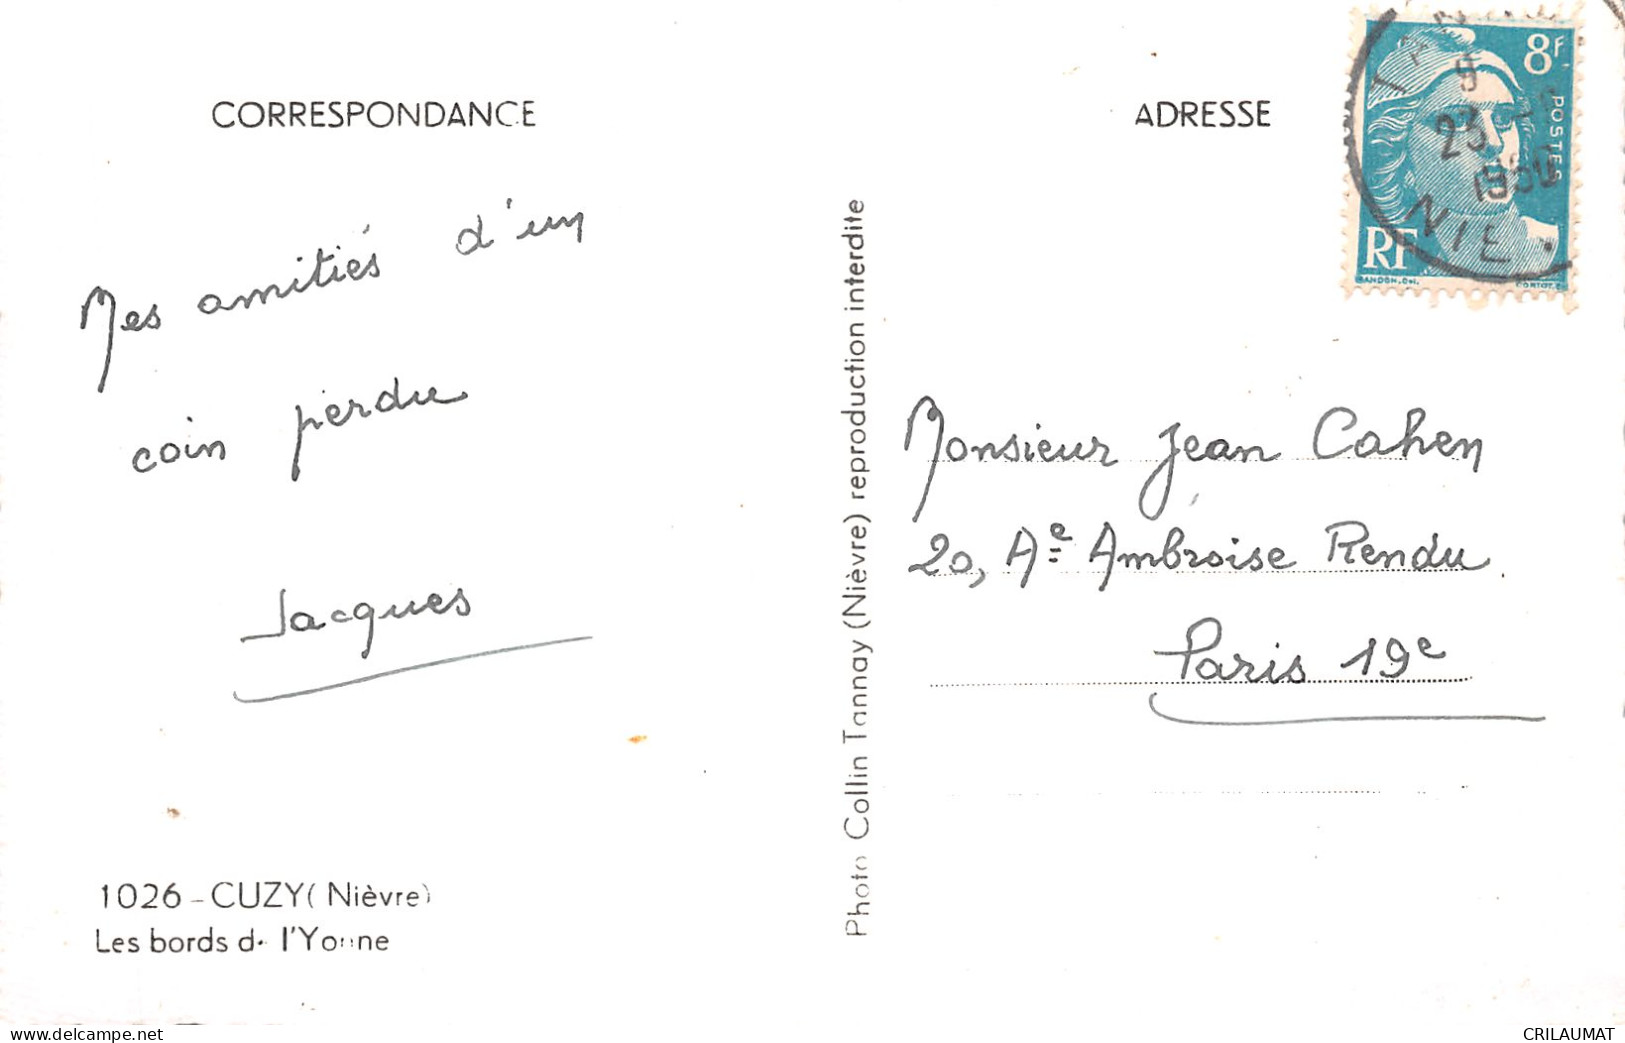 CORRESPONDANCE
Mes amitiés d'un
coin perdu
Jacques
1026 - CUZY (Nièvre)
Les bords de l'Yonne
Photo Collin Tannay (Nièvre) reproduction interdite
ADRESSE
8F
POSTES
RF
GANDON.Del.
CORTOT.
9
23
1950
NIE
Monsieur Jean Cahen
20, Ae Ambroise Rendu.
Paris 19e
www.delcampe.net
CRILAUMAT